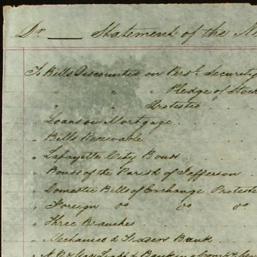 Dr ___ Statement of the
To Bills Discounted on Persl. Security
" " " Pledge of Stock
" " Protested
" Loans on Mortgage
" Bills Receivable
" Lafayette City Bonds
" Bonds of the Parish of Jefferson
" Domestic Bills of Exchange Protested
" Foreign do do
" Three Branches
" Mechanics & Traders Bank